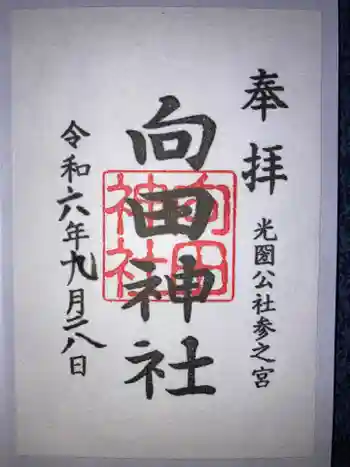 奉拝
光圀公社参之宮
向田神社
向田神社
令和六年九月二八日